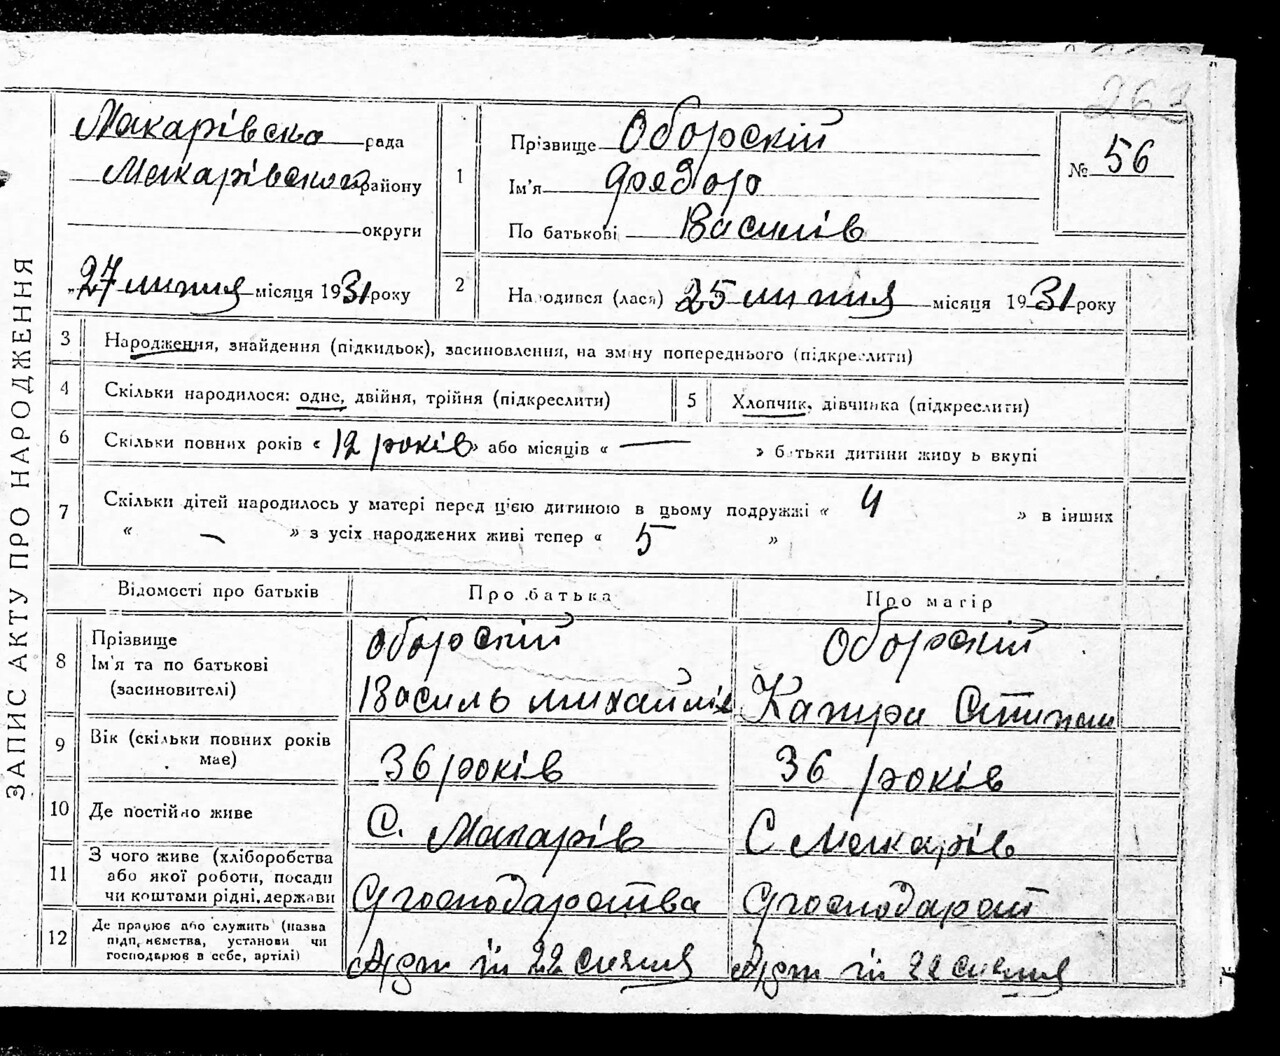 263
ЗАПИС АКТУ ПРО НАРОДЖЕННЯ
Макарівска рада
Макарівского району
округи
„27 липня місяця 1931 року
1
Прізвище Оборскій
Ім'я Федоро
По батькові Василів
№ 56
2
Народився (лася) 25 липня місяця 1931 року
3 Народження, знайдення (підкидьок), засиновлення, на зміну попереднього (підкреслити)
4 Скільки народилося: одне, двійня, трійня (підкреслити)
5 Хлопчик, дівчинка (підкреслити)
6 Скільки повних років « 12 років » або місяців « — » батьки дитини живуть вкупі
7 Скільки дітей народилось у матері перед цією дитиною в цьому подружжі « 4 » в інших
« — » з усіх народжених живі тепер « 5 »
Відомості про батьків
Про батька
Про матір
8
Прізвище
Ім'я та по батькові
(засиновителі)
Оборскій
Василь Михайлів
Оборскій
Степан
9
Вік (скільки повних років
має)
36 років
36 років
10 Де постійно живе
С. Макарів
С Макарів
11
З чого живе (хліборобства
або якої роботи, посади
чи коштами рідні, держави
Сгосподарства
Сгосподарст
12
Де працює або служить (назва
підприємства, установи чи
господарює в себе, артілі)
22
22